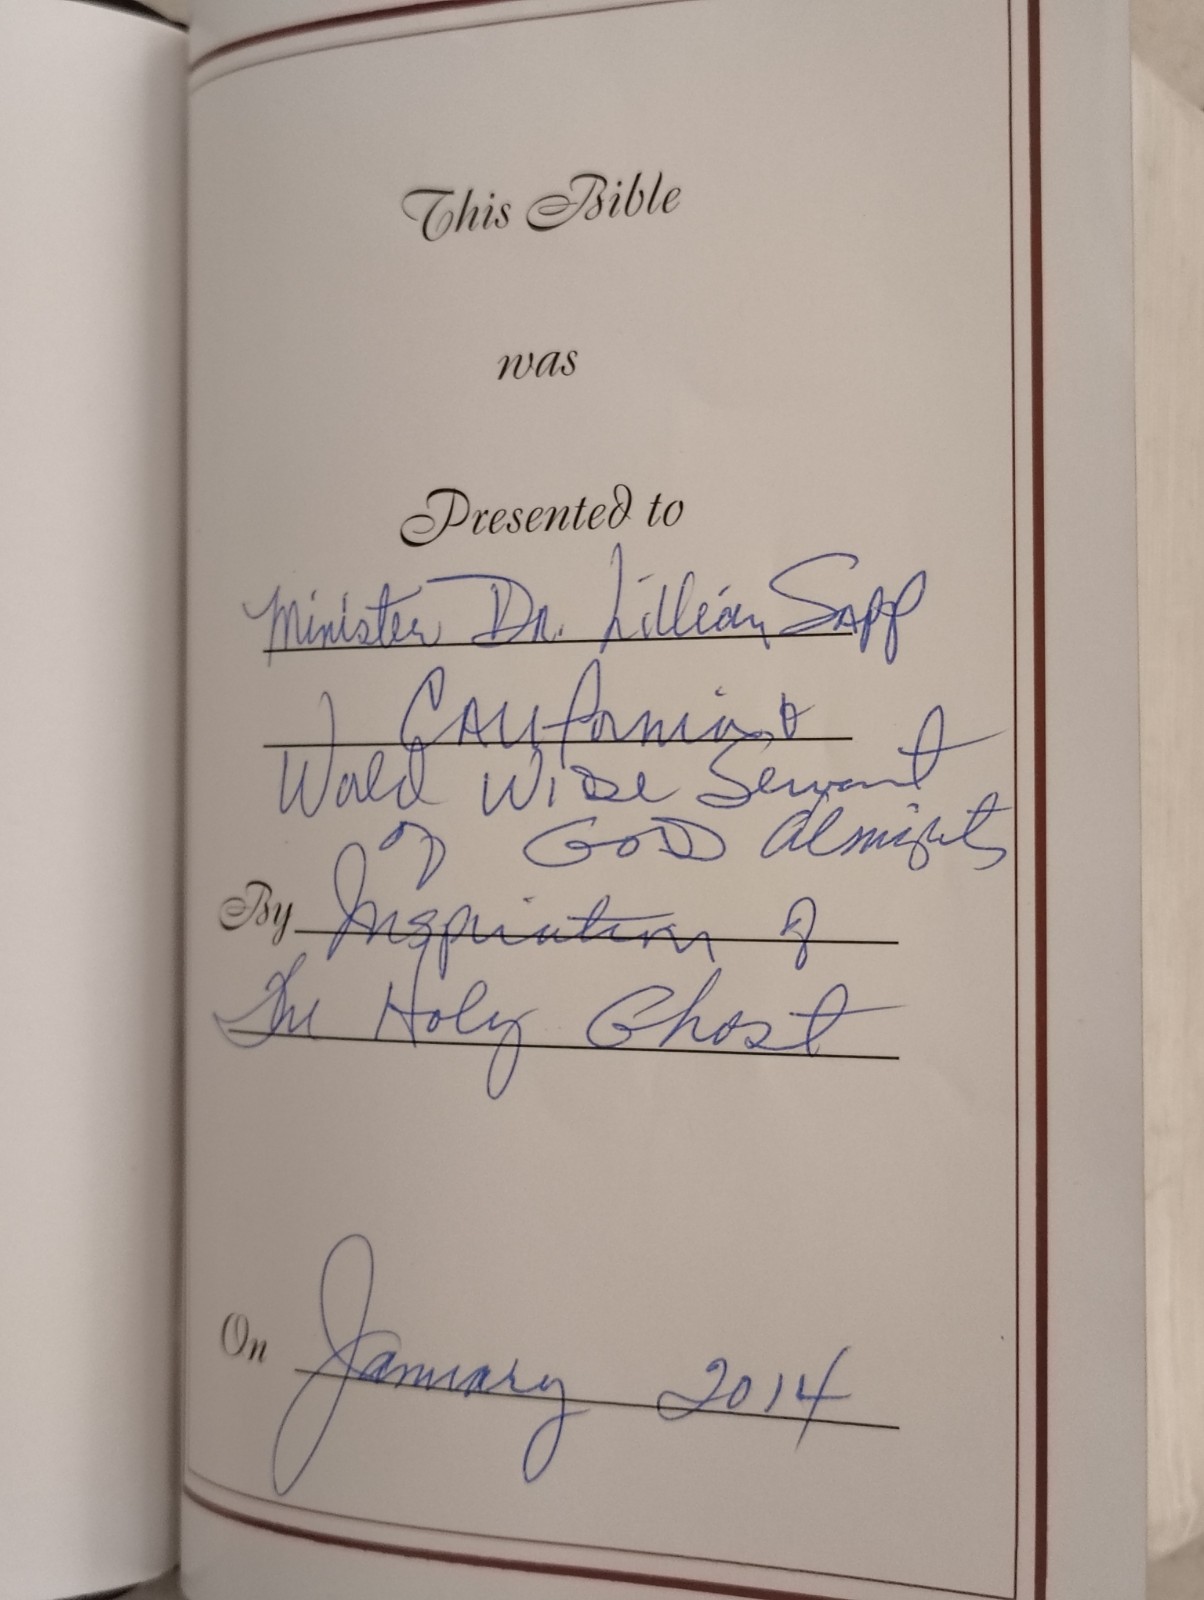 This Bible
was
Presented to
Minister Dr. Lillian Sapp
California &
World Wide Servant
of GOD Almighty
By Inspiration of
The Holy Ghost
On January 2014